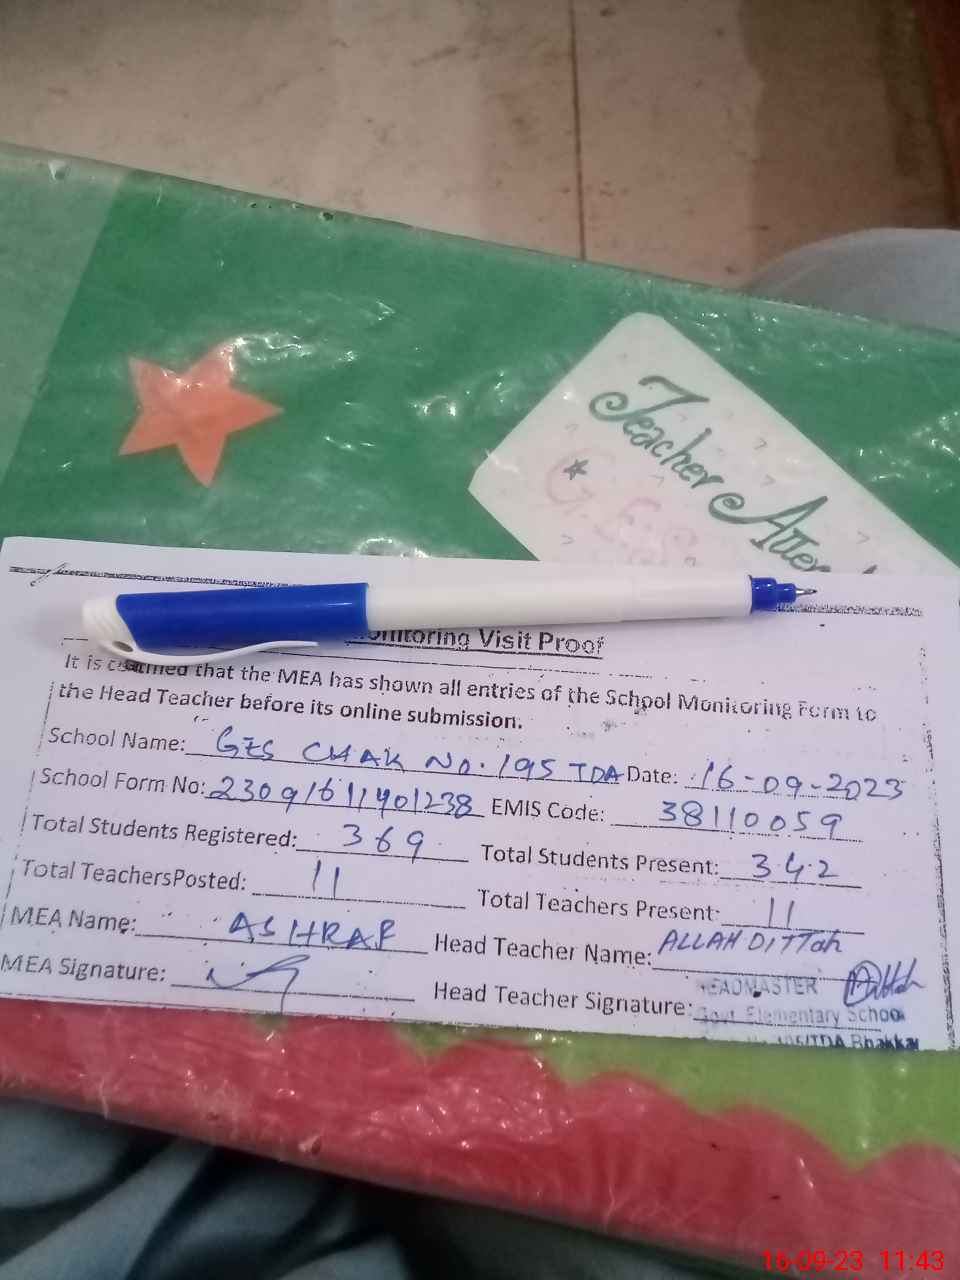 Teacher Atten
G.E.S
Monitoring Visit Proof
It is certified that the MEA has shown all entries of the School Monitoring Form to
the Head Teacher before its online submission.
School Name: GES CHAK No. 195 TDA Date: 16-09-2023
School Form No: 23091611401238 EMIS Code: 38110059
Total Students Registered: 369 Total Students Present: 342
Total TeachersPosted: 11 Total Teachers Present: 11
MEA Name: ASHRAF Head Teacher Name: ALLAH DITTah
MEA Signature: Head Teacher Signature:
HEADMASTER
Govt. Elementary School
195/TDA Bhakkar
16-09-23 11:43